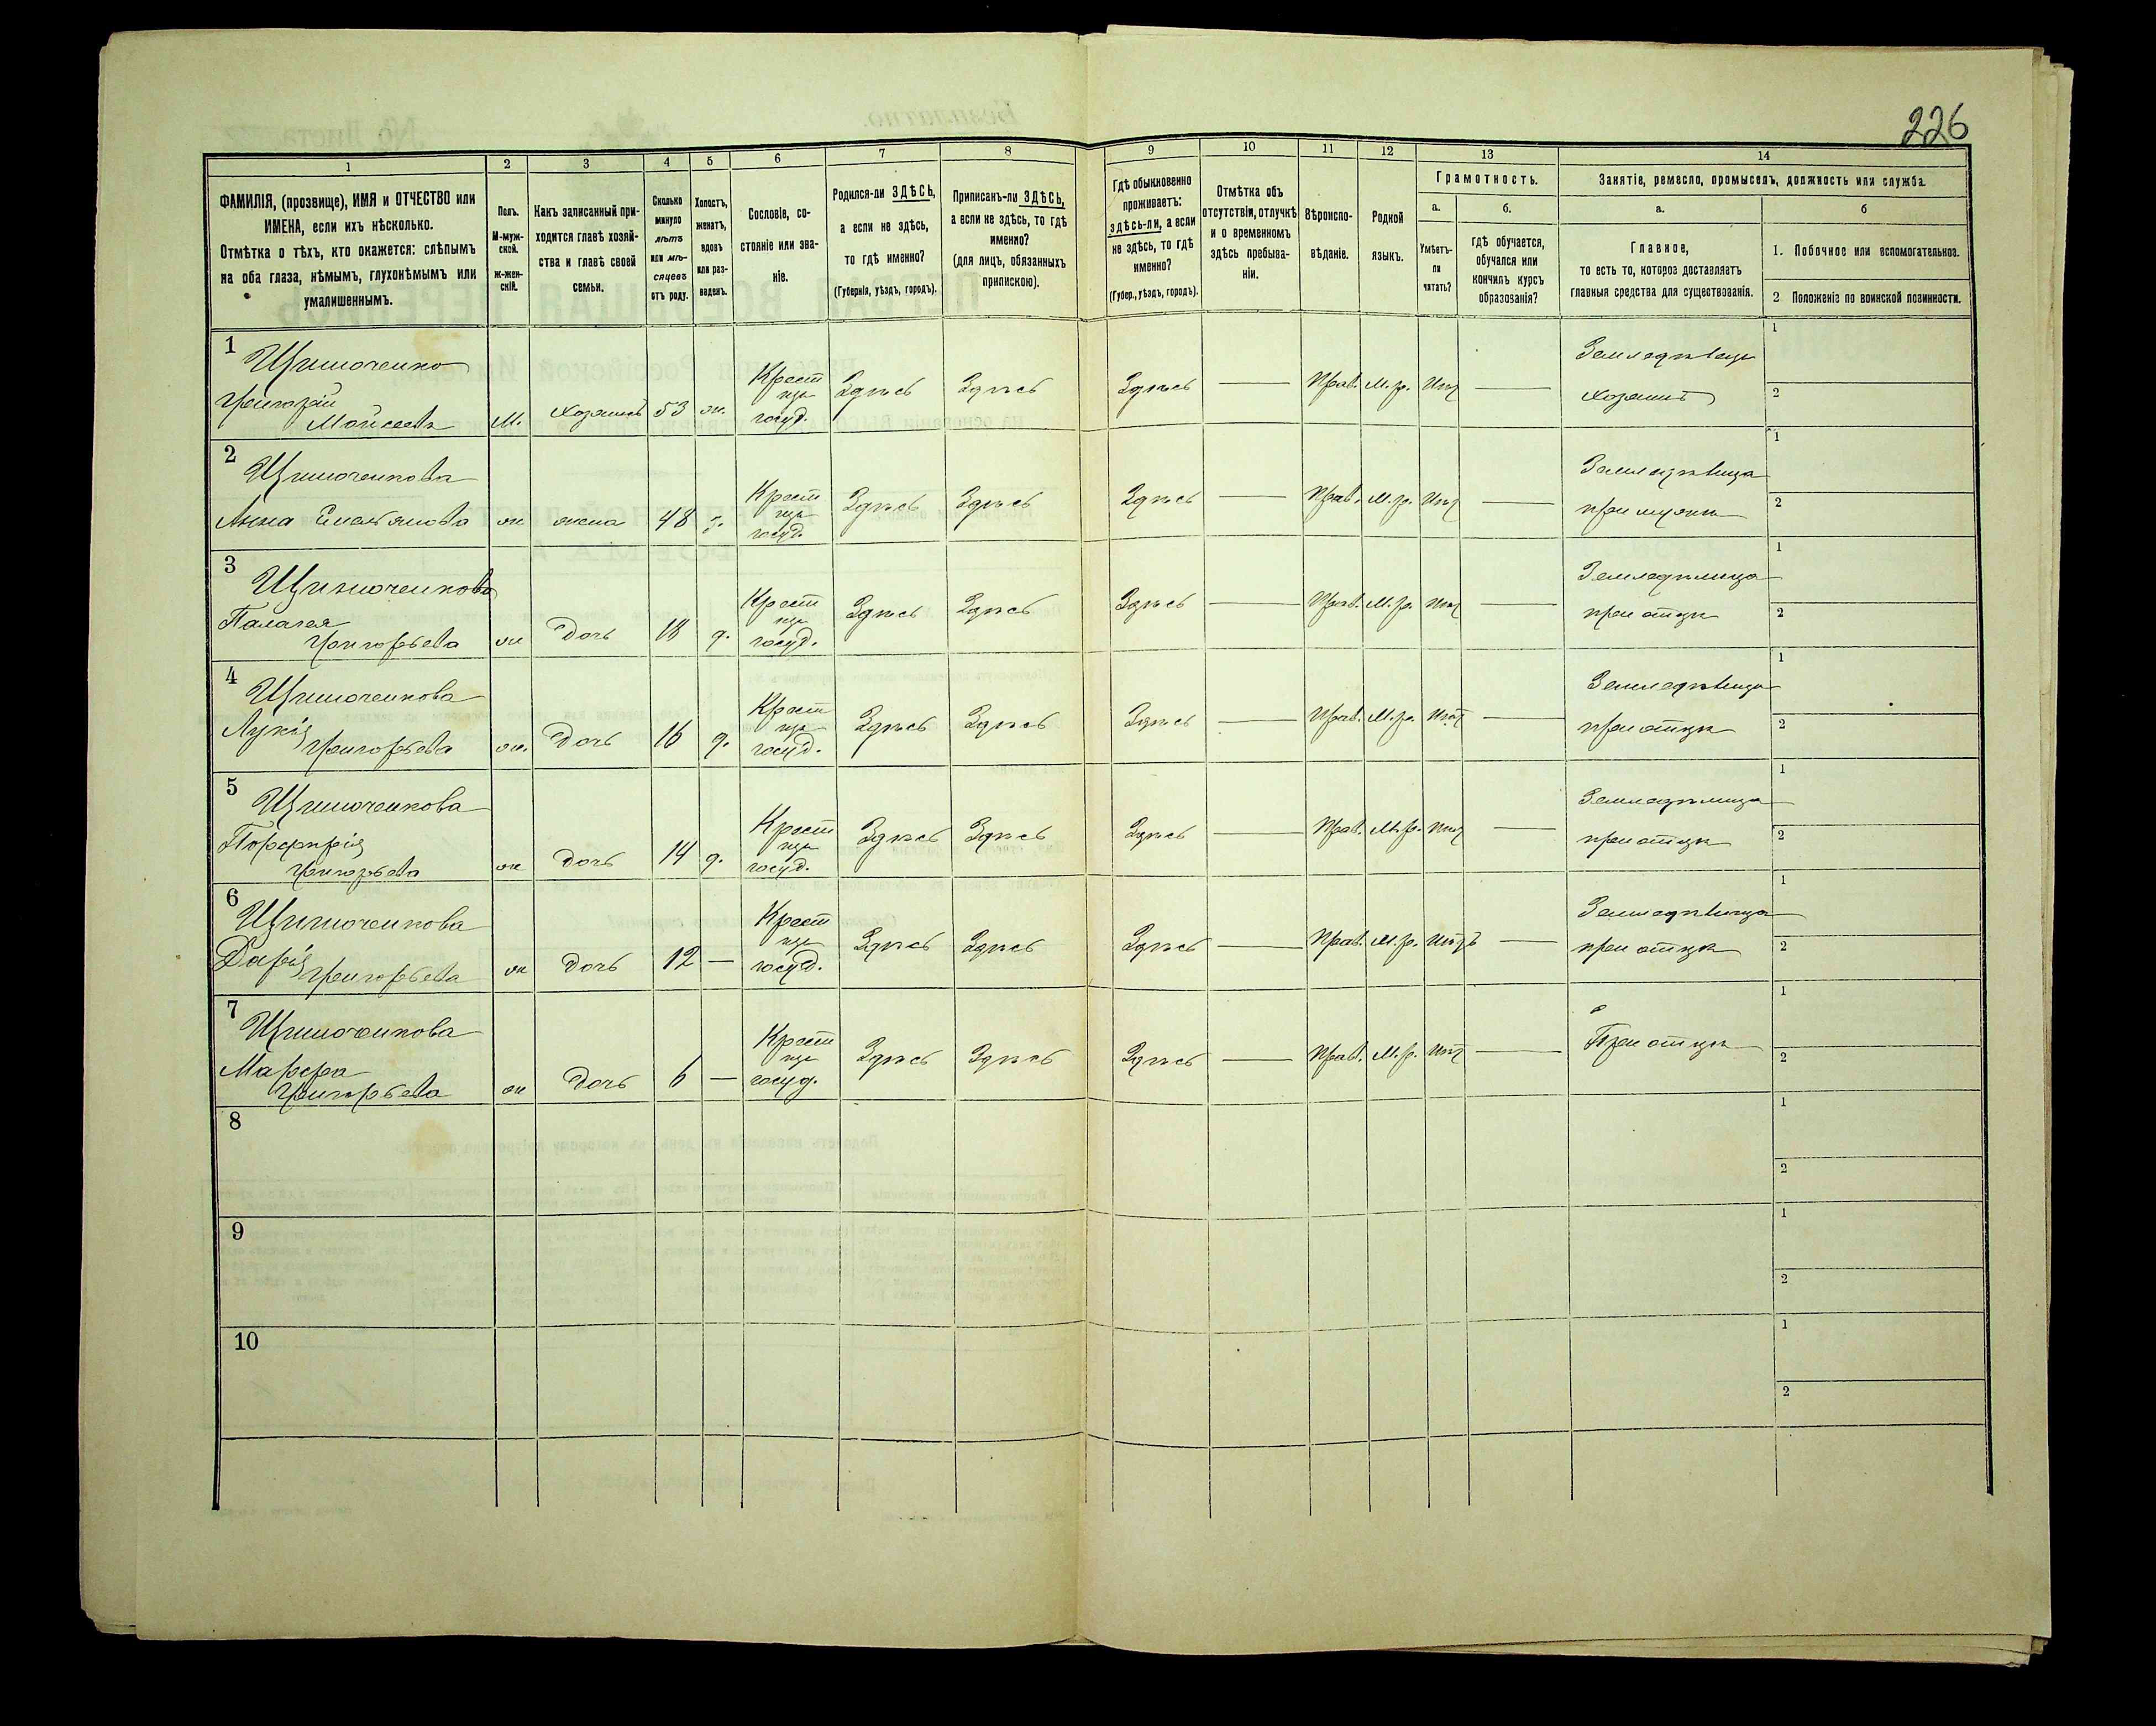 226
1
2
3
4
5
6
7
8
9
10
11
12
13
14
ФАМИЛІЯ, (прозвище), ИМЯ и ОТЧЕСТВО или
ИМЕНА, если ихъ нѣсколько.
Отмѣтка о тѣхъ, кто окажется: слѣпымъ
на оба глаза, нѣмымъ, глухонѣмымъ или
умалишеннымъ.
Полъ.
М-муж-
ской.
Ж-жен-
скій.
Какъ записанный при-
ходится главѣ хозяй-
ства и главѣ своей
семьи.
Сколько
минуло
лѣтъ
или мѣ-
сяцевъ
отъ роду.
Холостъ,
женатъ,
вдовъ
или раз-
веденъ.
Сословіе, со-
стояніе или зва-
ніе.
Родился-ли ЗДѢСЬ,
а если не здѣсь,
то гдѣ именно?
(Губернія, уѣздъ, городъ).
Приписанъ-ли ЗДѢСЬ,
а если не здѣсь, то гдѣ
именно?
(для лицъ, обязанныхъ
припискою).
Гдѣ обыкновенно
проживаетъ:
здѣсь-ли, а если
не здѣсь, то гдѣ
именно?
(Губер., уѣздъ, городъ).
Отмѣтка объ
отсутствіи, отлучкѣ
и о временномъ
здѣсь пребыва-
ніи.
Вѣроиспо-
вѣданіе.
Родной
языкъ.
Грамотность.
а.
Умѣетъ-
ли
читать?
б.
гдѣ обучается,
обучался или
кончилъ курсъ
образованія?
Занятіе, ремесло, промыселъ, должность или служба.
а.
Главное,
то есть то, которое доставляетъ
главныя средства для существованія.
б
1. Побочное или вспомогательное.
2 Положеніе по воинской повинности.
1
Григорій
Моисеевъ
М. Хозяинъ 53 ж. Крест
госуд. Здѣсь Здѣсь Здѣсь — Прав. М. р. Нѣт —
хозяинъ
1
2
2
Анна Емельянова ж жена 48 Крест
госуд. Здѣсь Здѣсь Здѣсь — Прав. М. р. Нѣт —
при мужѣ
1
2
3
Палагея
Григорьева ж Дочь 18 д. Крест
госуд. Здѣсь Здѣсь Здѣсь — Прав. М. р. Нѣт —
при отцѣ
1
2
4
Григорьева ж. Дочь 16 д. Крест
госуд. Здѣсь Здѣсь Здѣсь — Прав. М. р. Нѣт —
при отцѣ
1
2
5
Григорьева ж Дочь 14 д. Крест
госуд. Здѣсь Здѣсь Здѣсь — Прав. М. р. Нѣт —
при отцѣ
1
2
6
Дарія Григорьева ж Дочь 12 — Крест
госуд. Здѣсь Здѣсь Здѣсь — Прав. М. р. Нѣтъ —
при отцѣ
1
2
7
Марфа
Григорьева ж Дочь 6 — Крест
госуд. Здѣсь Здѣсь Здѣсь — Прав. М. р. Нѣт —
При отцѣ
1
2
8
1
2
9
1
2
10
1
2